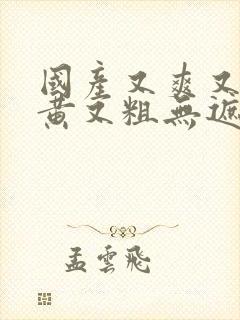 國產又爽又
黃又粗無遮
孟雲飛